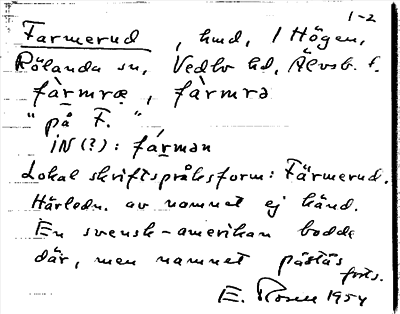 1-2
Farmerud, hmd, 1 Högen,
Rölanda sn, Vedbo hd, Älvsb. l.
fàrmræ, fàrmrə
"på F."
IN(?): fármən
Lokal skriftspråksform: Färmerud.
Härledn. av namnet ej känd.
En svensk-amerikan bodde
där, men namnet påstås
forts.
E. Rosen 1954